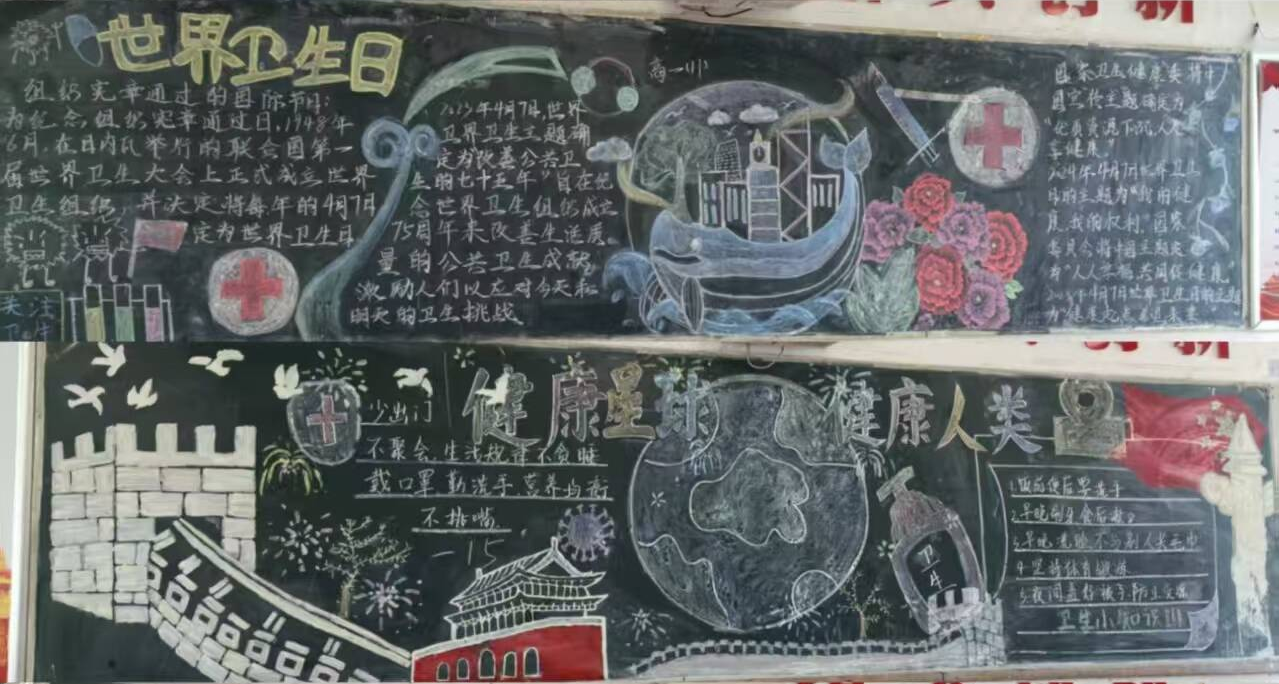 世界卫生日
组织宪章通过的国际节日:
为纪念组织宪章通过日,1948年
6月,在日内瓦举行的联合国第一
届世界卫生大会上正式成立世界
卫生组织,并决定将每年的4月7日
定为世界卫生日
关注
卫生
2023年4月7日,世界
卫界卫生主题确
定为"改善公共卫
生的七十五年"旨在纪
念世界卫生组织成立
75周年来改善生活质
量的公共卫生成就
激励人们以应对今天和
明天的卫生挑战
高一
国家卫生健康委将中
国宣传主题确定为
"优质资源下沉,人人
享健康"
2024年4月7日世界卫生
日的主题为"我的健
康,我的权利"国家
委员会将中国主题定
为"人人享握共同促健康
年4月7日世界卫生日的主题
创新
健康星球 健康人类
少出门
不聚会.生活规律不贪睡
戴口罩勤洗手营养均衡
不挑嘴
一15
卫4
1.饭前便后要洗手
2.早晚刷牙食后漱口
4.坚持体育锻炼
卫生小知识!!!